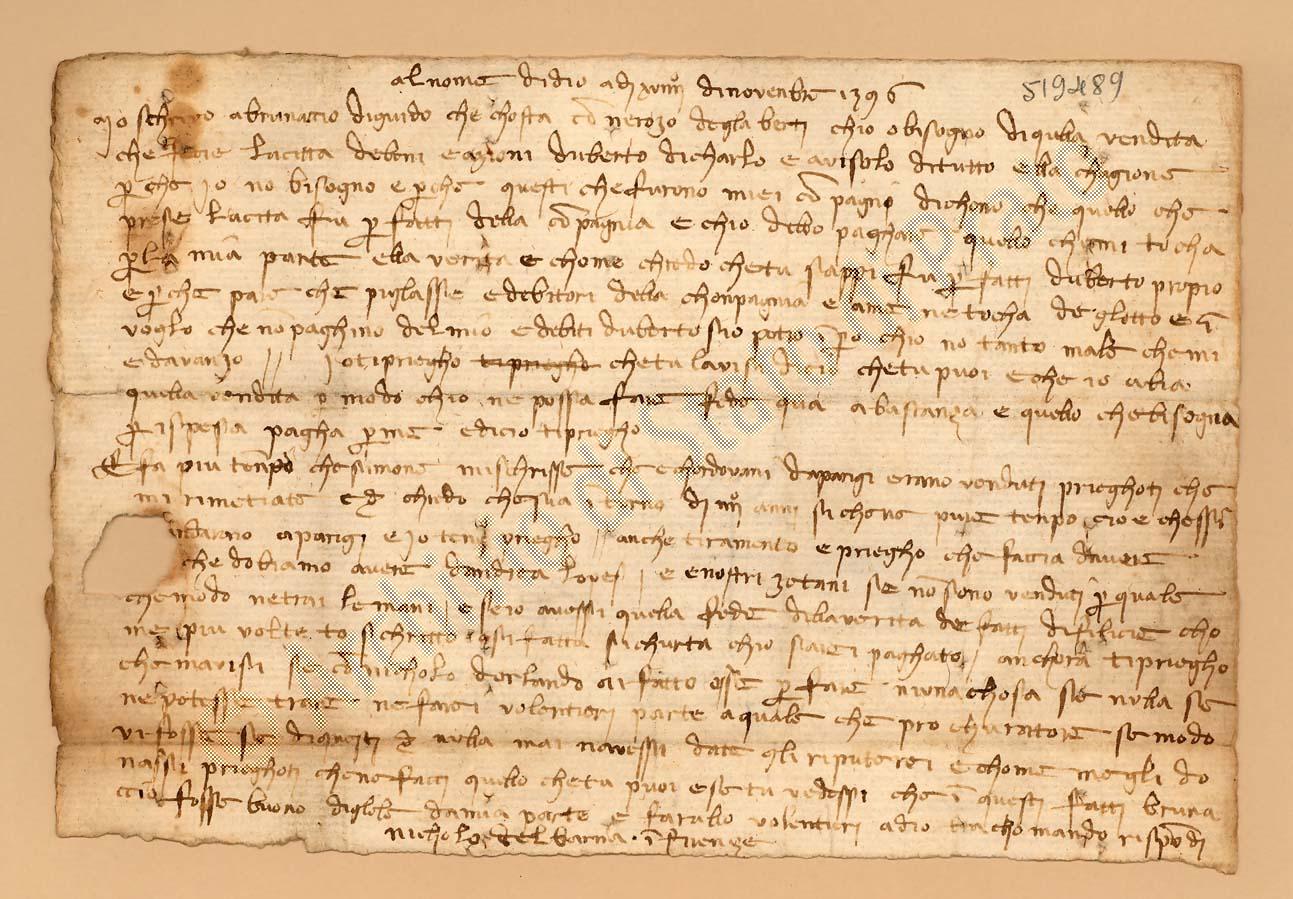 al nome didio adi xviiij dinovenbre 1396
519489
Io schrivo abrunaccio diguido che chosta cō nerozo degla berti chio o bisogno diquella vendita
che fecie lacitta debeni e azioni duberto dicharlo e avisolo ditutto e lla chagione
p che io no bisogno e p che questi che furono miei cō pagni dichono che quello che
prese lacitta fu p fatti della cō pagnia e chio debo paghare quello chemi tocha
p la mia parte ella verita e chome chredo chetu sappi fu p fatti duberto propio
e p che pare che piglassie edebitori della chonpagnia e ame ne tocha de
voglo che nō paghino delmio e debiti duberto suo chio no tanto male chemi
edavanzo // Io tipriegho tipriegho chetu lavisi dicio chetu puoi e che io abia
quella vendita p modo chio ne possa fare fede qua abastanza e quello chebisogna
p ispesa pagha p me e dicio tipriegho
E fa piu tenpo che simone mischrisse che echordovani daparigi erano venduti prieghoti che
mi rimetiate chredo chesia itorno di iiij anni siche ne pure tenpo cioe chessi
aparigi e io tene priegho // anche tiramento e priegho che faccia davere
che dobiamo avere dandica lopes / e enostri zetani se nō sono venduti p quale
chemodo netrai le mani / e se io avessi quella fede dellaverita de fatti difilicie cho
me piu volte to schritto qsi fatta sichurta chio sarei paghato / anchora tipriegho
che mavisi se cō nicholo dorlando ai fatto p fare niuna chosa se nulla se
ne potesse trare ne farei volentieri parte aquale che prochuratore se modo
vi fosse se diquesti nulla mai navessi date gli riputerei e chome meglo do
nassi prieghoti chene facci quello chetu puoi e se tu vedessi che ī questi fatti bruna
ccio fosse buono diglele damia parte e farallo volentieri adio tiracho mando rispōdi
nicholo del barna · ī firenze